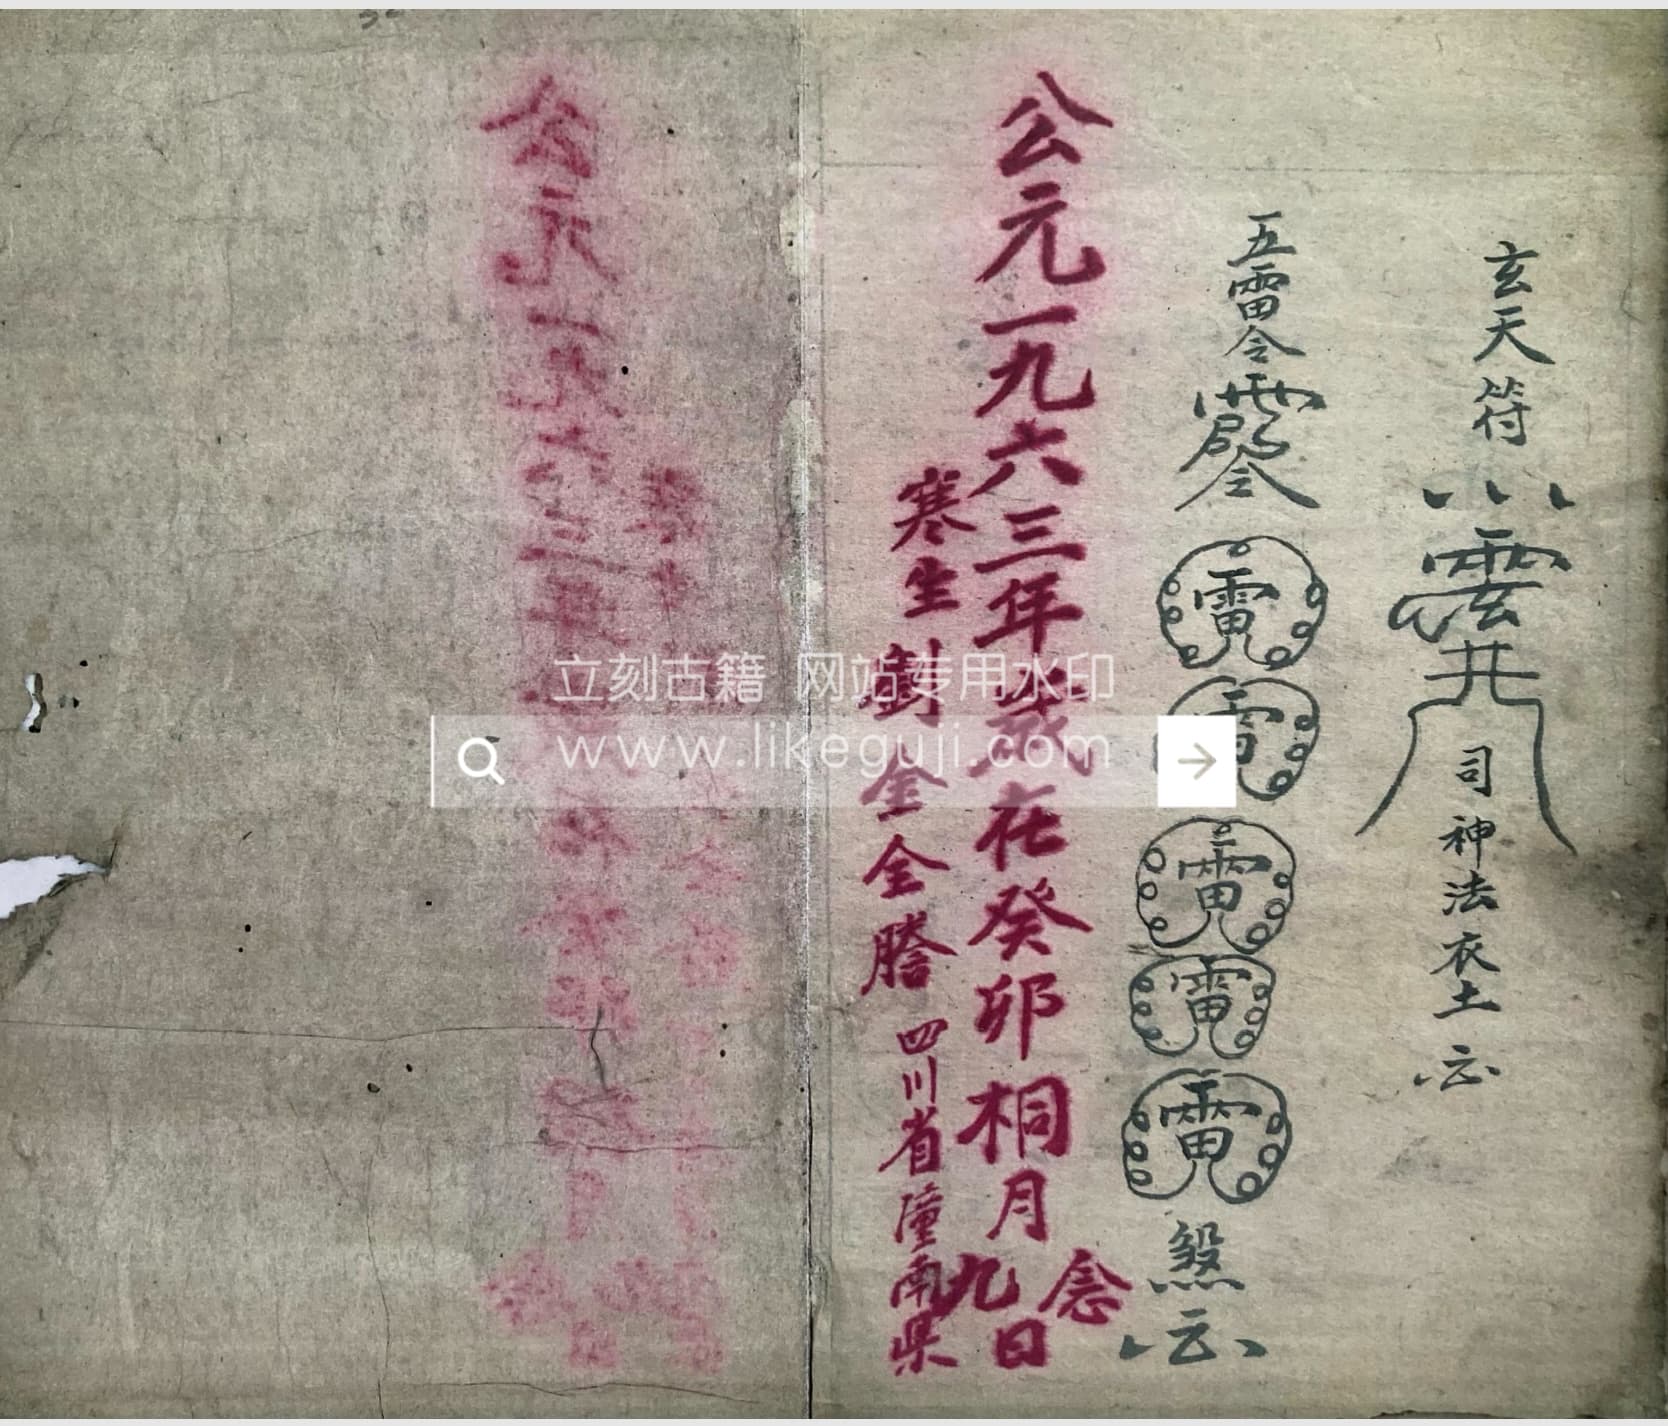 玄天符
雲井
司神法衣土
五雷令
雷
雷
雷
雷
雷
煞
公元一九六三年歲在癸卯桐月念九日
寒生樹金全謄
四川省潼南県
立刻古籍 网站专用水印
www.likeguji.com
公元一九六三年